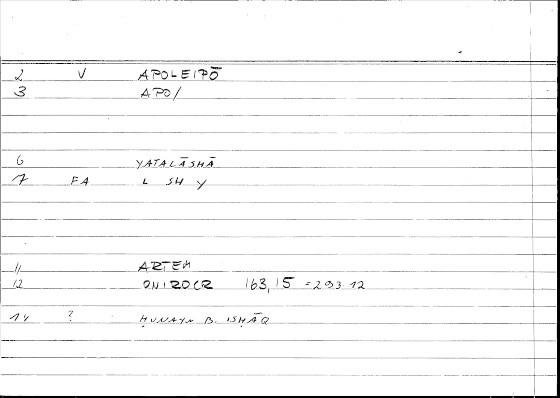 2 V APOLEIPŌ
3 APO/
6 YATALĀSHĀ
7 FA L SH Y
11 ARTEM
12 ONIROCR 163,15 = 293.12
14 ? ḤUNAYN B. ISḤĀQ